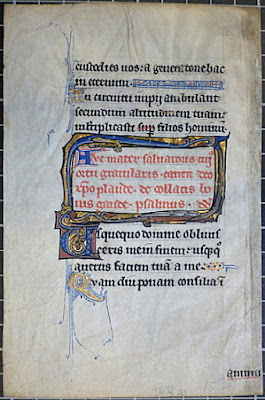 custodies nos · a generatone hac
in eternum ·
In circuitu impij ambulant
secundum altitudinem tuam
multiplicasti filios hominu·
Ave mater salvatoris
ceti gratularis · canen deo
xpo plaude · de collatis bo
nis gaude · psalmus ·
Usquequo domine oblivis
ceris me in finem · usq̄quo
avertis faciem tuā a me ·
Quam diu ponam consilia ī
anima